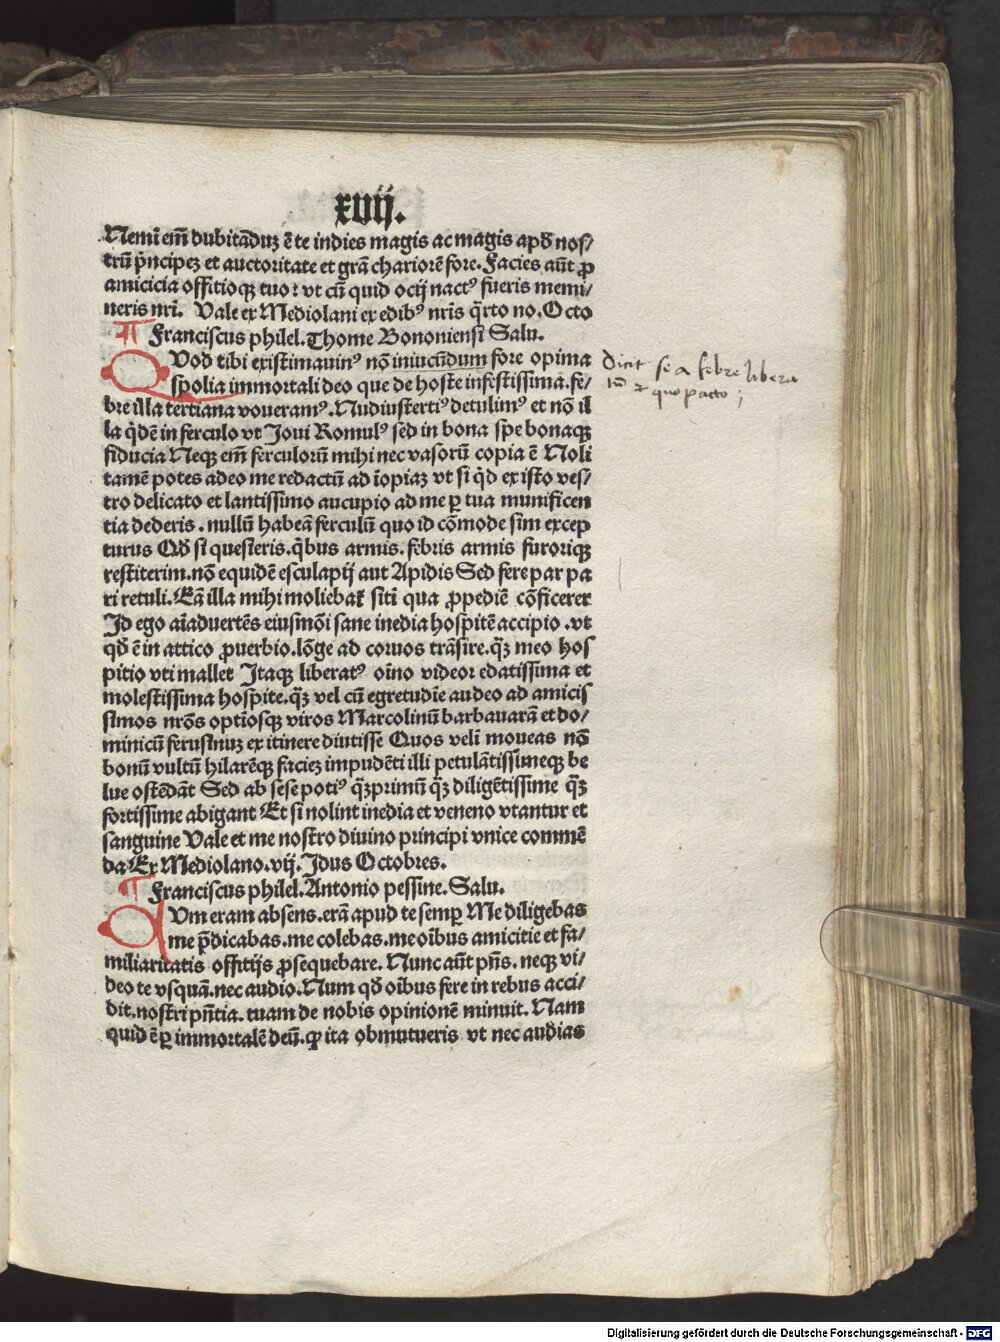 xvij.
Nemī em̄ dubitāduꝫ ē te indies magis ac magis apđ nos/
trū p̄ncipeꝫ et auctoritate et grā chariorē fore. Facies aūt ꝓ
amicicia offitioqꝫ tuo ꝛ vt cū quid ocij nactꝰ fueris memi/
neris nrī. Vale ex Mediolani ex edibꝰ nrīs q̄rto no. Octo
¶ Franciscus philel. Thome Bononiensi Salu.
QVod tibi existimauimꝰ nō iniucūdum fore opima
spolia immortali deo que de hoste infestissima. fe/
bre illa tertiana voueramꝰ. Nudiustertiꝰ detulimꝰ et nō il
la q̄dē in ferculo vt Joui Romulꝰ sed in bona spe bonaqꝫ
fiducia Neqꝫ em̄ ferculorū mihi nec vasorū copia ē Noli
tamē potes adeo me redactū ad īopiaꝫ vt si q̄d ex isto ves/
tro delicato et lantissimo aucupio ad me ꝑ tua munificen
tia dederis. nullū habeā ferculū quo id cōmode sim excep
turus Qđ si quesieris. q̄bus armis. febris armis furoriqꝫ
restiterim. nō equidē esculapij aut Apidis Sed fere par pa
ri retuli. Eā illa mihi moliebat̄ siti qua ꝓpediē cōficerer
Jd ego aīaduertēs eiusmōi sane inedia hospitē accipio. vt
qđ ē in attico ꝓuerbio. lōge ad coruos trāsire. q̄ꝫ meo hos
pitio vti mallet Jtaqꝫ liberatꝰ oīno videor edatissima et
molestissima hospite. q̄ꝫ vel cū egretudīe audeo ad amicis
simos nrōs optīosqꝫ viros Marcolinū barbauarā et do/
minicū ferusinuꝫ ex itinere diutisse Quos velī moueas nō
bonū vultū hilarēqꝫ facieꝫ impudēti illi petulātissimeqꝫ be
lue ostēdāt Sed ab sese potiꝰ q̄ꝫprimū q̄ꝫ diligētissime q̄ꝫ
fortissime abigant Et si nolint inedia et veneno vtantur et
sanguine Vale et me nostro diuino principi vnice commē
da Ex Mediolano. vij. Jdus Octobres.
¶ Franciscus philel. Antonio pessine. Salu.
QVm eram absens. erā apud te semꝑ Me diligebas
me p̄dicabas. me colebas. me oībus amicitie et fa/
miliaritatis offitijs ꝓsequebare. Nunc aūt pn̄s. neqꝫ vi/
deo te vsquā. nec audio. Num qđ oībus fere in rebus acci/
dit. nostri pn̄tia. tuam de nobis opinionē minuit. Nam
quid ē ꝑ immortalē deū. ꝙ ita obmutueris vt nec audias
Dicit se a febre libera
quo pacto;
Digitalisierung gefördert durch die Deutsche Forschungsgemeinschaft - DFG